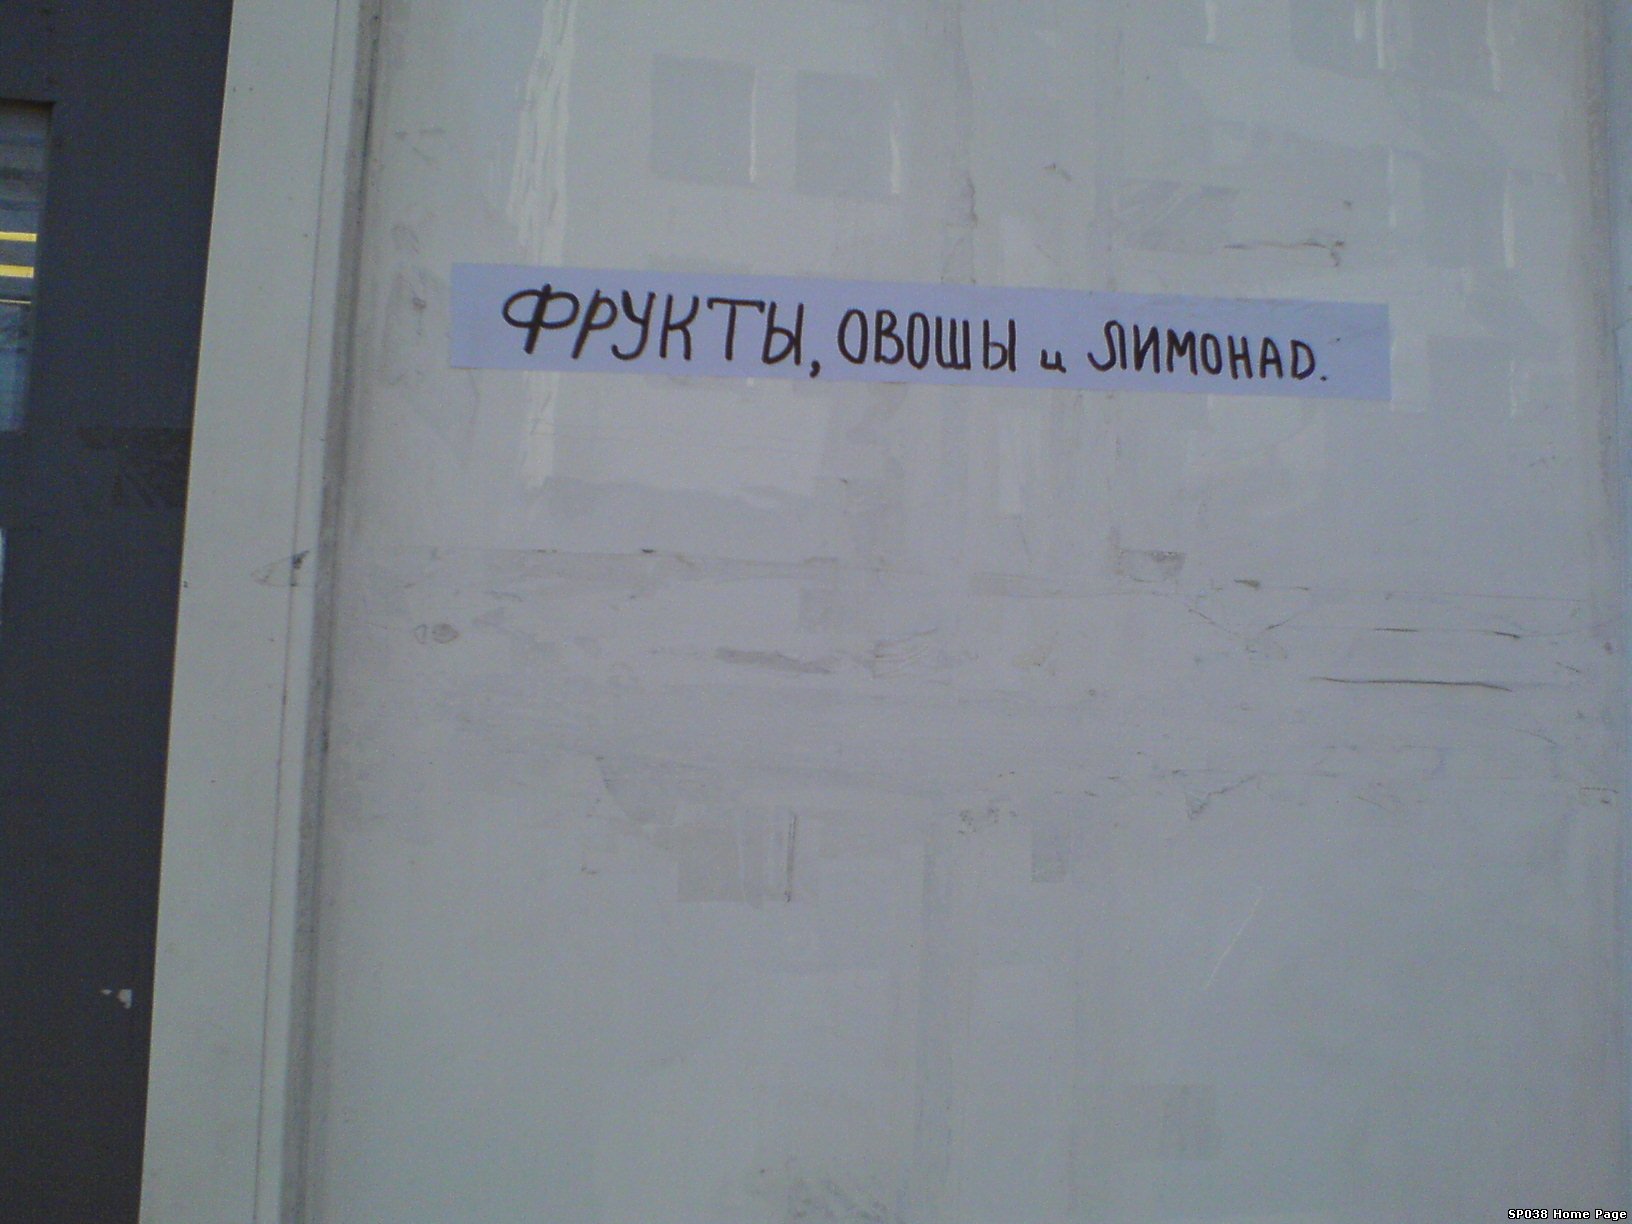 ФРУКТЫ, ОВОШЫ и ЛИМОНАD.
SP038 Home Page